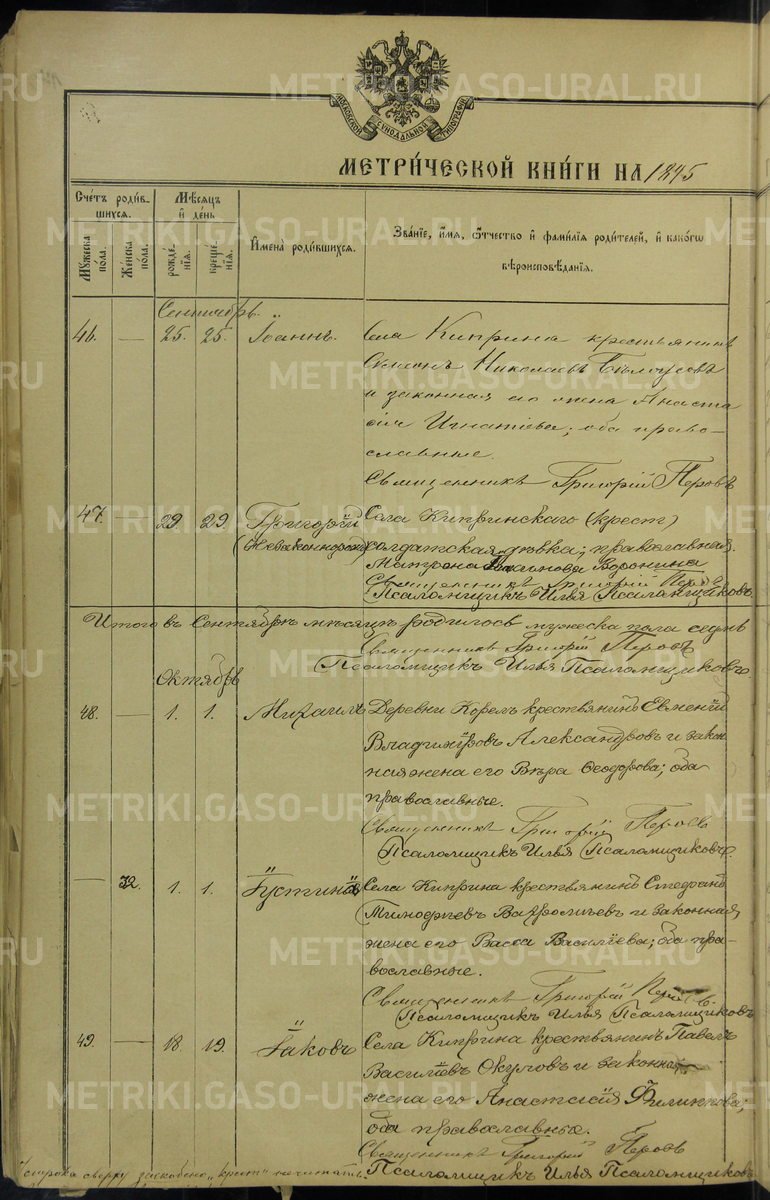 МОСКОВСКОЙ СѴНОДАЛЬНОЙ ТИПОГРАФІИ
МЕТРИ́ЧЕСКОЙ КНИ́ГИ НА 1895
Сче́тъ роди́вшихся.
Мѣ́сяцъ и де́нь
Му́жеска по́ла.
Же́нска по́ла.
рожде́нія.
креще́нія.
Имена̀ роди́вшихся.
Зва́ніе, и́мя, ѻ́тчество и фами́лія роди́телей, и како́гѡ вѣроисповѣ́данія.
Сентябрь.
46. — 25. 25. Іоаннъ. Села Киприна крестьянинъ
Симеонъ Николаевъ Бѣлоусовъ
и законная его жена Анаста
сія Игнатіева; оба право-
славные.
Священникъ Григорій Перовъ
47. 29 29 Григорій Села Кипринскаго (крест)
(Незаконнорож) солдатская дѣвка; православная
Матрона Воронина
Священникъ Григорій Перовъ
Псаломщикъ Илья Псаломщиковъ
Итого въ Сентябрѣ мѣсяцѣ родилось мужеска пола седмь
Священникъ Григорій Перовъ
Псаломщикъ Илья Псаломщиковъ
Октябрь
48. — 1. 1. Михаилъ Деревни Корелъ крестьянинъ Евменій
Владиміровъ Александровъ и закон
ная жена его Вѣра Ѳеодорова; оба
православные.
Священникъ Григорій Перовъ
Псаломщикъ Илья Псаломщиковъ.
— 32. 1. 1. Іустина Села Киприна крестьянинъ Стефанъ
Тимофіевъ и законная
жена его Васса Василіева; оба пра-
вославные.
Священникъ Григорій Перовъ.
Псаломщикъ Илья Псаломщиковъ
49. — 18. 19. Іаковъ Села Киприна крестьянинъ Павелъ
Василіевъ Окуловъ и законная
жена его Анастасія Филиппова;
оба православные.
Священникъ Григорій Перовъ
строка сверху зачеркнено „крест" не читать. Псаломщикъ Илья Псаломщиковъ
METRIKI.GASO-URAL.RU